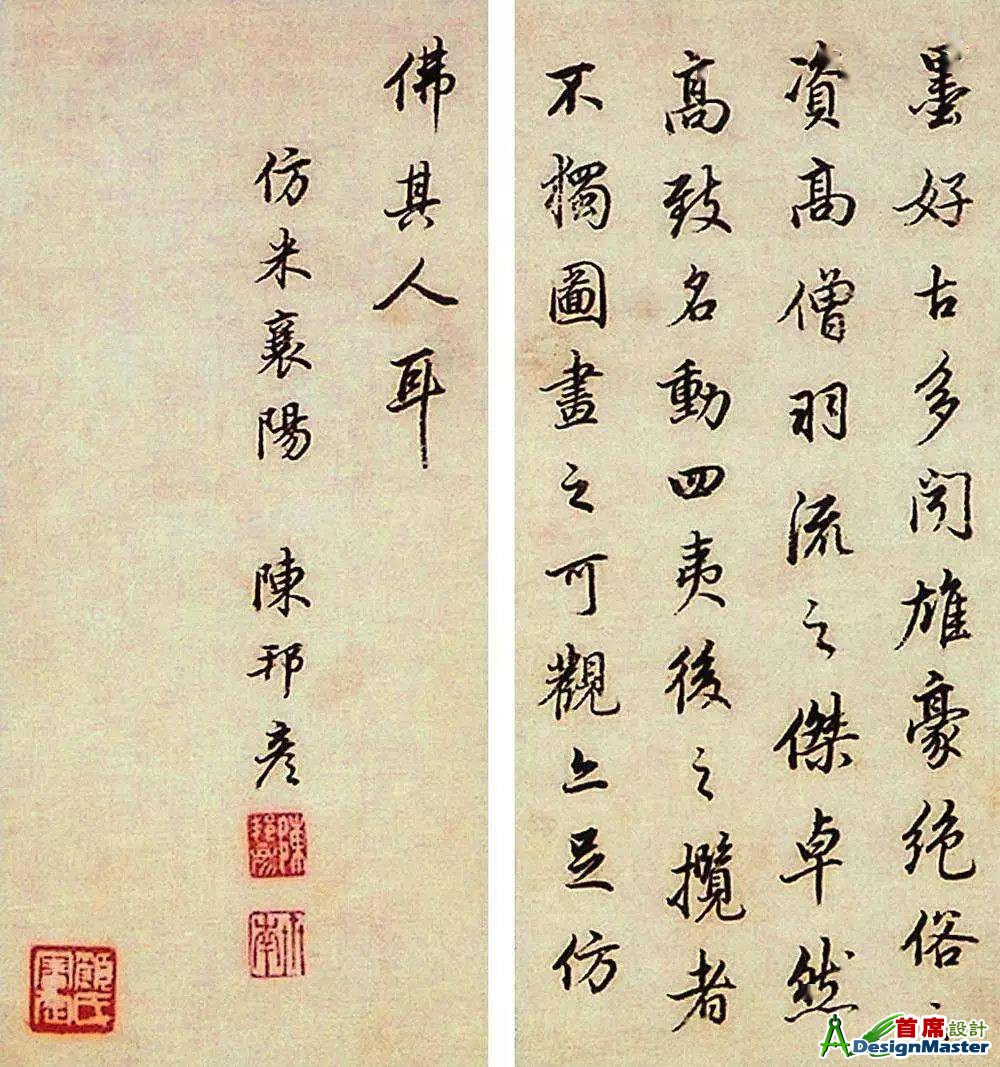 墨好古多闻雄豪绝俗之
資高僧羽流之傑卓然
高致名動四夷後之攬者
不獨圖畫之可觀亦足仿
佛其人耳
仿米襄陽 陳邦彦
陳邦彦
顧氏
首席設計
DesignMaster